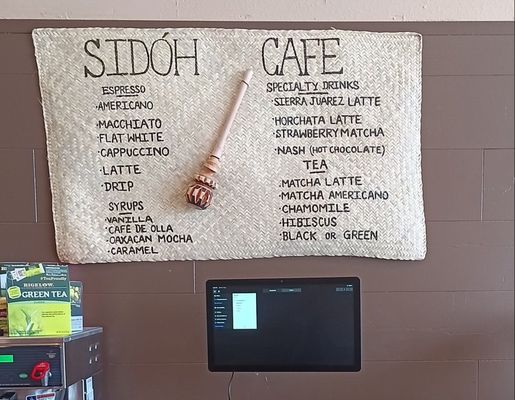 SIDÓH CAFE
ESPRESSO
·AMERICANO
·MACCHIATO
·FLAT WHITE
·CAPPUCCINO
·LATTE
·DRIP
SYRUPS
·VANILLA
·CAFÉ DE OLLA
·OAXACAN MOCHA
·CARAMEL
SPECIALTY DRINKS
·SIERRA JUAREZ LATTE
·HORCHATA LATTE
·STRAWBERRY MATCHA
·NASH (HOT CHOCOLATE)
TEA
·MATCHA LATTE
·MATCHA AMERICANO
·CHAMOMILE
·HIBISCUS
·BLACK OR GREEN
BIGELOW
GREEN TEA